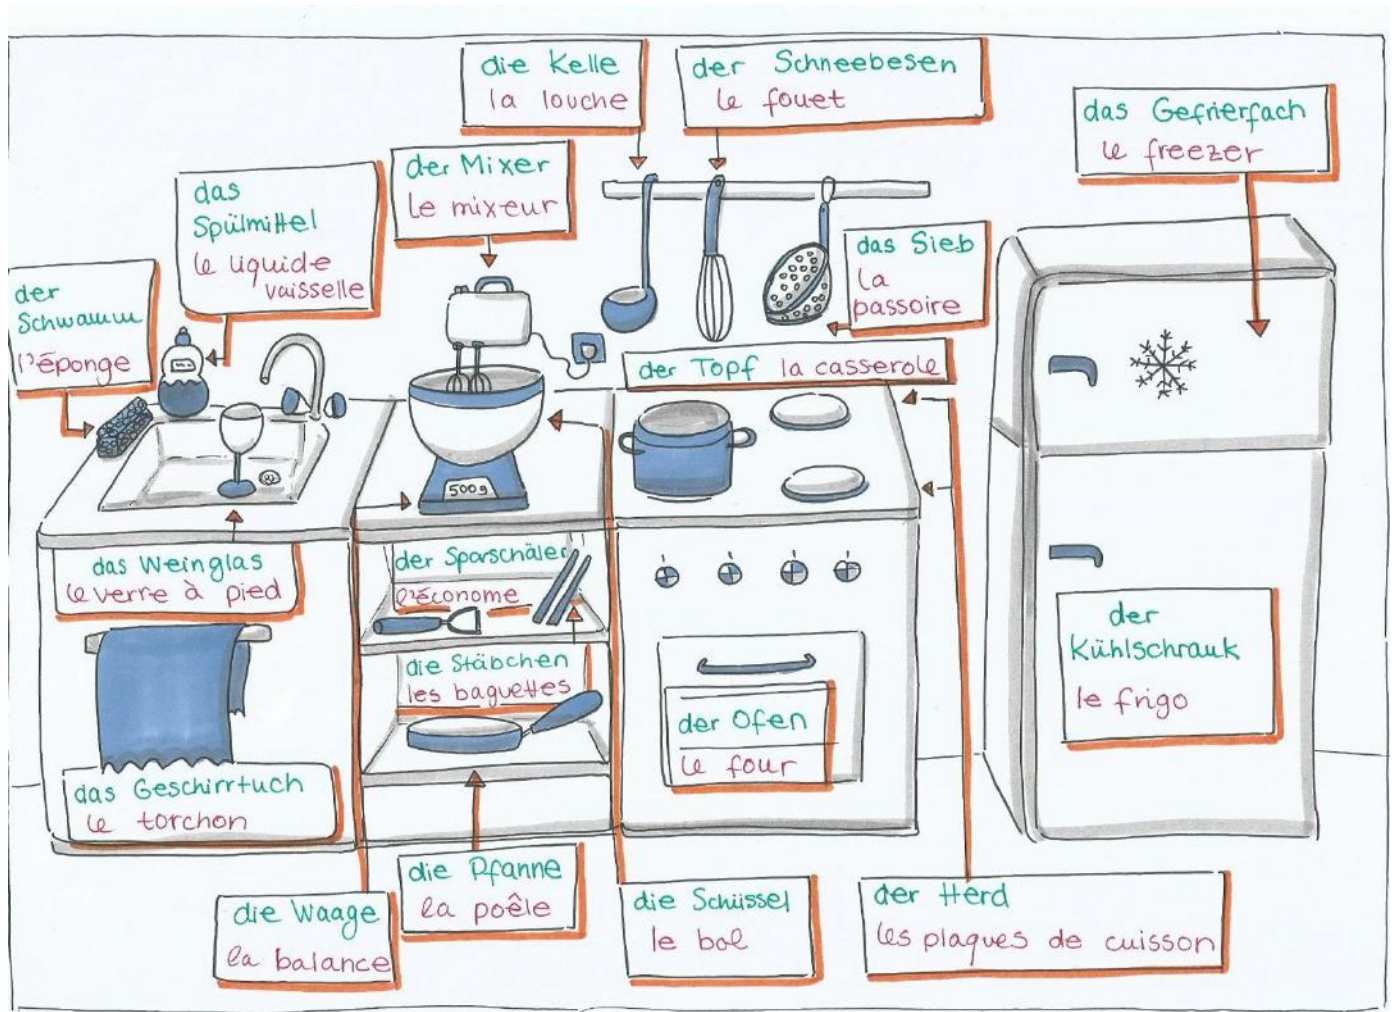 die Kelle
la louche
der Schneebesen
le fouet
das Gefrierfach
le freezer
der Mixer
le mixeur
das
Spülmittel
le liquide
vaisselle
das Sieb
la
passoire
der
Schwamm
l'éponge
der Topf la casserole
500g
das Weinglas
le verre à pied
der Sparschäler
l'économe
die Stäbchen
les baguettes
der
Kühlschrank
le frigo
der Ofen
le four
das Geschirrtuch
le torchon
die Pfanne
la poêle
die Waage
la balance
die Schüssel
le bol
der Herd
les plaques de cuisson